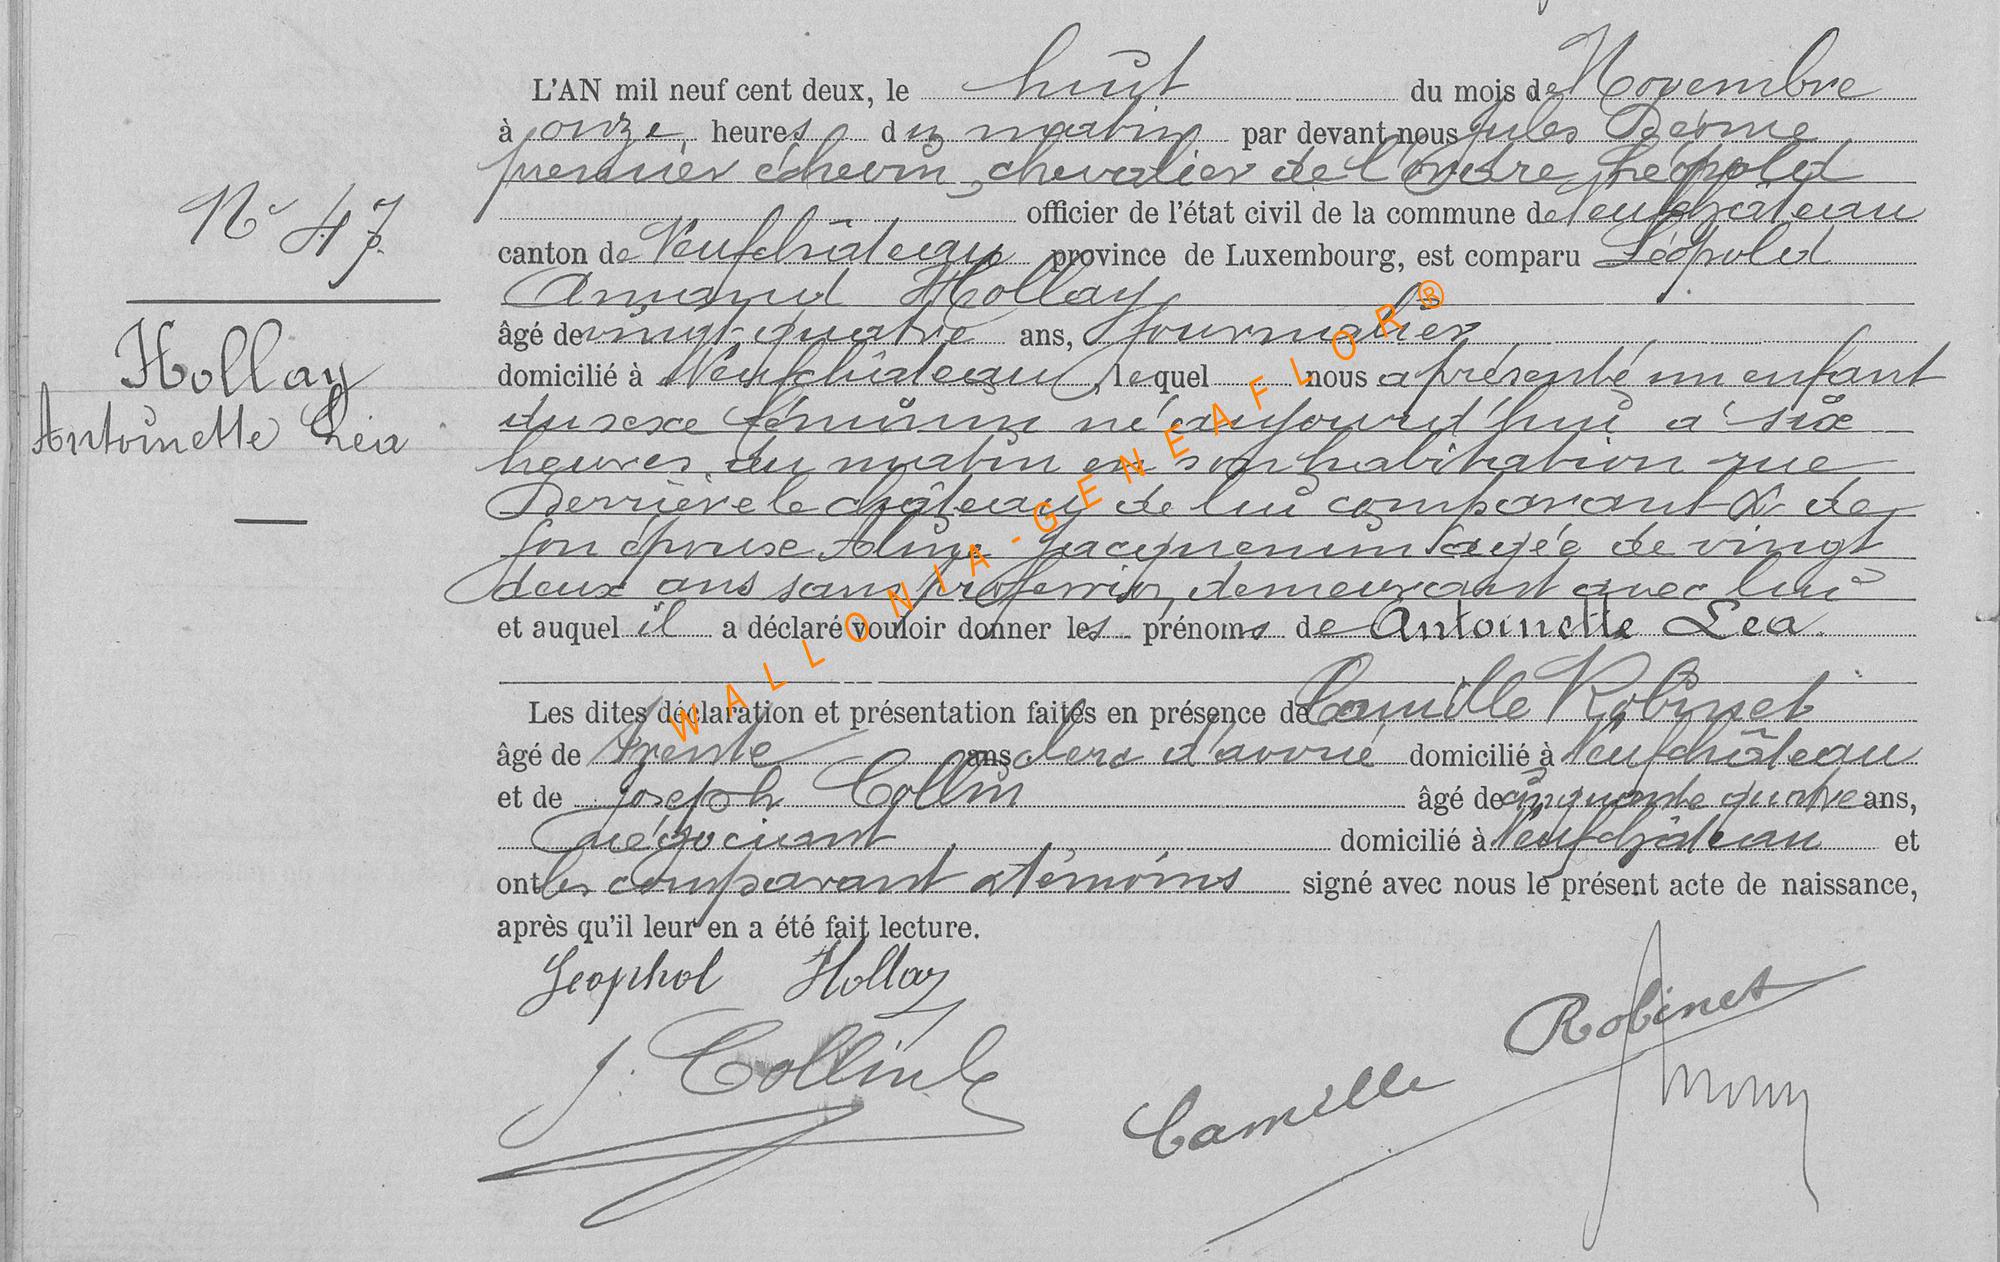 L'AN mil neuf cent deux, le huit du mois de Novembre
à onze heures du matin par devant nous Jules
premier échevin, chevalier de l'Ordre Léopold
officier de l'état civil de la commune de Neufchâteau
canton de Neufchâteau province de Luxembourg, est comparu Léopold
Amand Hollay
âgé de vingt-quatre ans, journalier
domicilié à Neufchâteau, lequel nous a présenté un enfant
du sexe féminin né aujourd'hui à six
heures du matin en son habitation rue
Derrière le château de lui comparant & de
son épouse Jacquemin âgée de vingt
deux ans sans profession, demeurant avec lui
et auquel il a déclaré vouloir donner les prénoms de Antoinette Lea.
Les dites déclaration et présentation faites en présence de Camille Robinet
âgé de trente ans clerc d'avoué domicilié à Neufchâteau
et de Joseph Collin âgé de cinquante quatre ans,
négociant domicilié à Neufchâteau et
ont les comparant & témoins signé avec nous le présent acte de naissance,
après qu'il leur en a été fait lecture.
Leophol Hollay
J. Collin
Camille Robinet
N° 47
Hollay
Antoinette Lea
WALLONIA-GENEAFLOR®